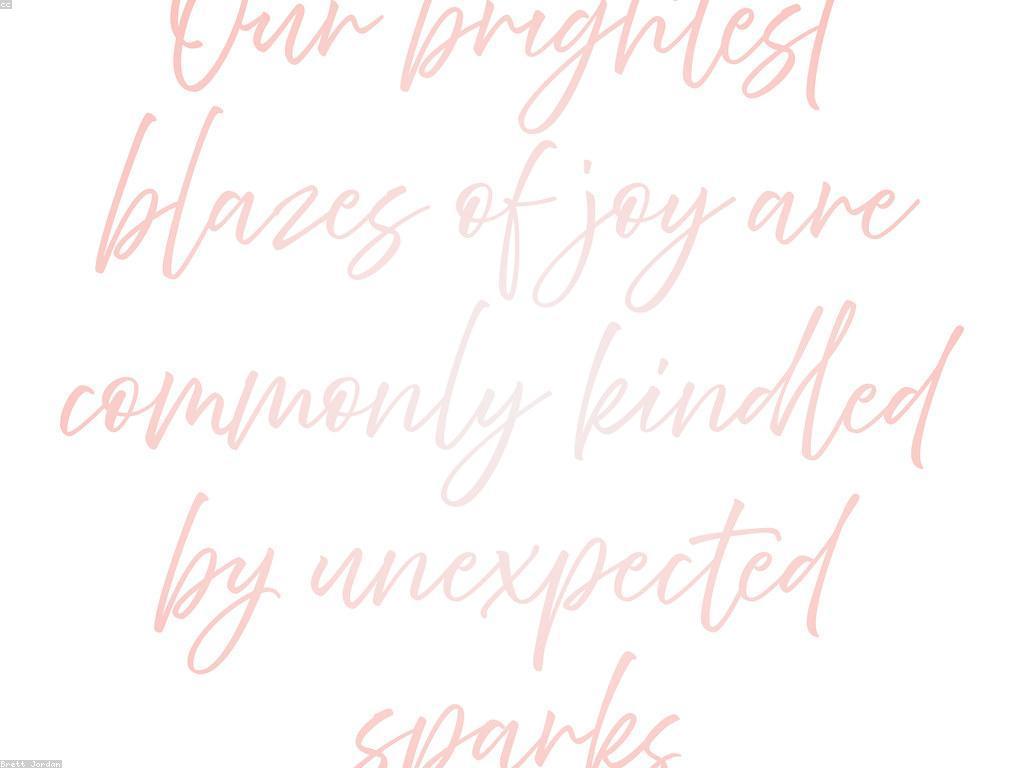 cc
Our brightest
blazes of joy are
commonly kindled
by unexpected
sparks
Brett Jordan